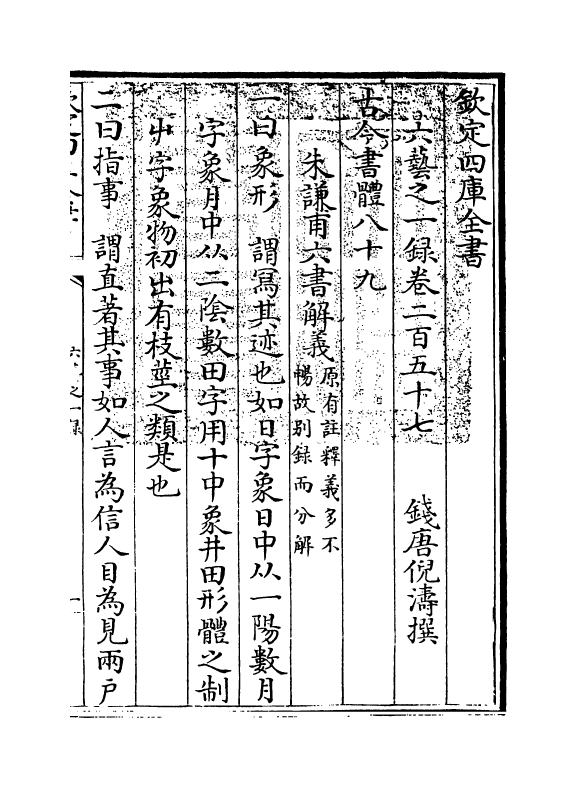 欽定四庫全書
六藝之一録卷二百五十七
錢唐倪濤撰
古今書體八十九
朱謙甫六書解義
原有註釋義多不
暢故别録而分解
一曰象形　謂寫其迹也如日字象日中从一陽數月
字象月中从二陰數田字用十中象井田形體之制
屮字象物初出有枝莖之類是也
二曰指事　謂直著其事如人言為信人目為見兩戶